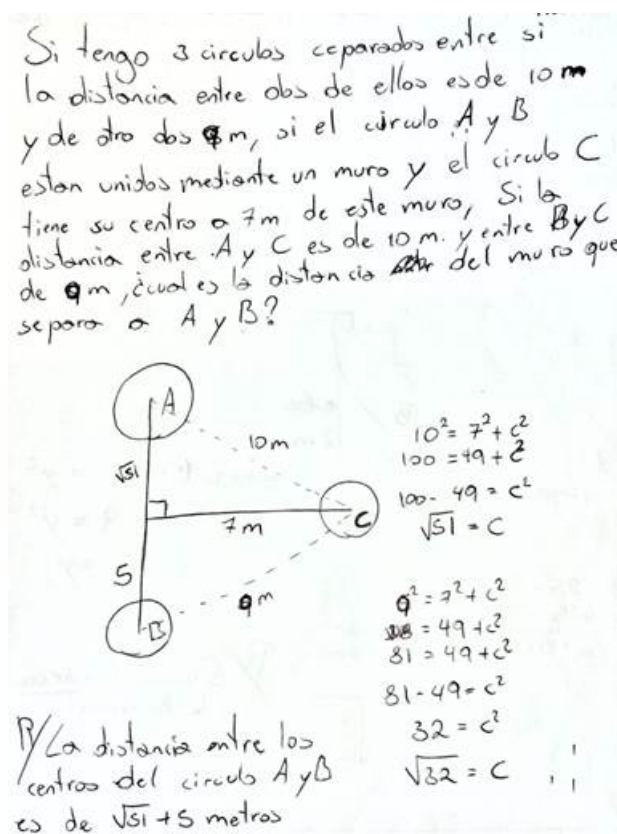 Si tengo 3 circulos ceparados entre si
la distancia entre dos de ellos es de 10 m
y de otro dos 9 m, si el circulo A y B
estan unidos mediante un muro y el circulo C
tiene su centro a 7m de este muro, Si la
distancia entre A y C es de 10 m. y entre B y C
de 9 m, ¿cual es la distancia del muro que
separa a A y B?
A
10m
√51
7m
C
5
9m
B
10² = 7² + c²
100 = 49 + c²
100 - 49 = c²
√51 = C
9² = 7² + c²
= 49 + c²
81 = 49 + c²
81 - 49 = c²
32 = c²
√32 = C
R/ La distancia entre los
centros del circulo A y B
es de √51 + 5 metros